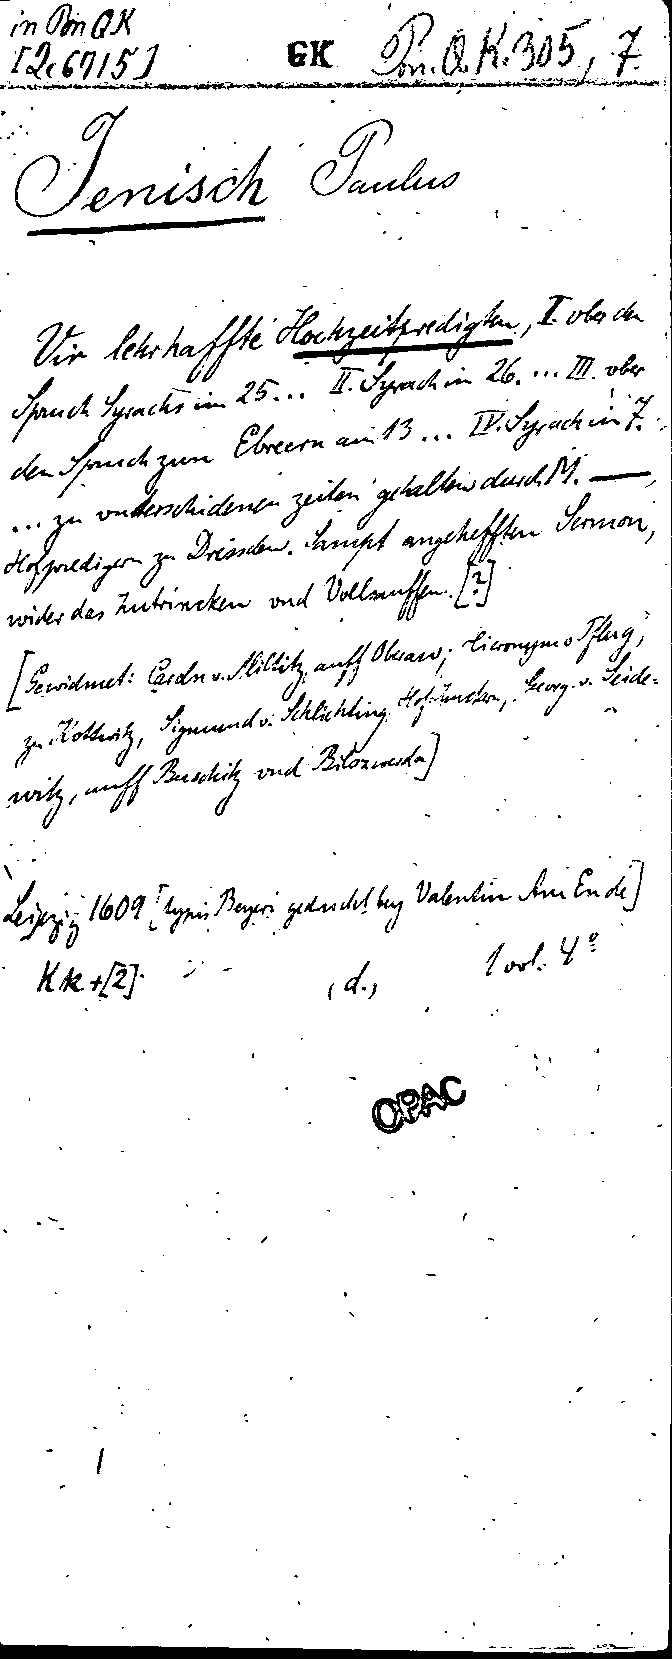 in Pon QK
[2c6715]
GK Pon. Q.K. 305, 7.
Jenisch Paulus
Vir lehrhaffte Hochzeitpredigten, I. vber den
Spruch Syrachs im 25... II. Syrach im 26. ... III. vber
den Spruch zun Ebreern am 13 ... IV. Syrach im 7.
... zu vnderschidenen zeiten gehalten durch M. —,
Hofpredigern zu Dressden. Sampt angehefften Sermon,
wider das Zutrincken vnd Vollsauffen. [?]
[Gewidmet: v. Miltitz, auff Oberaw; Hieronymo Pflug,
zu Kottwitz, Sigmund v. Schlichting, Hof-Junckern, Georg v. Seide-
witz, auff vnd]
Leipzig 1609 [typis Beyeri gedruckt bey Valentin Am Ende]
Kk + [2].
, d.,
1 vol. 4°
OPAC